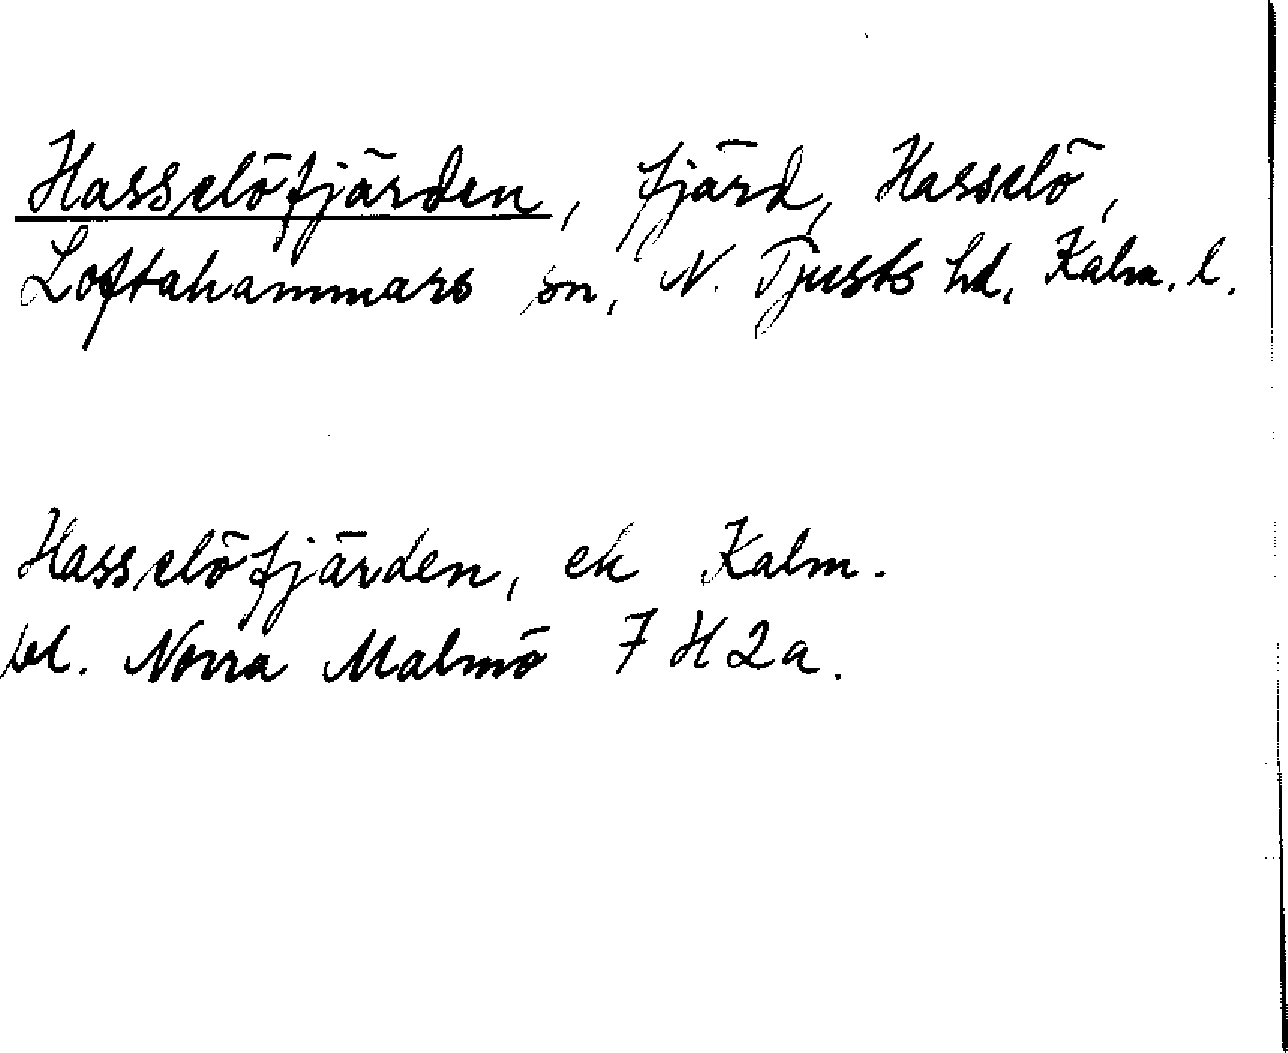 Hasselöfjärden, fjärd, Hasselö,
Loftahammars sn, N. Tjusts hd, Kalm. l.
Hasselöfjärden, ek Kalm.
bl. Norra Malmö 7 H 2a.